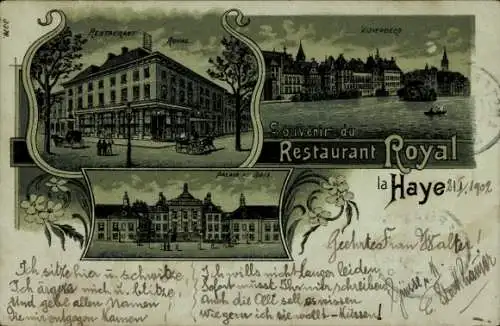 RESTAURANT ROYAL
VIJVERBERG
Souvenir du
Restaurant Royal
la Haye
21/I. 1902
PALAIS AU BOIS
Geehrtes Frau Walter!
Ich sitze hier u. schwitze,
Ich ärgre mich u. blitze
Und gebe allen Namen
Die mir entgegen kamen
Ich wills nicht langer leiden,
Sofort musst Ihr mir schreiben
Auch die Olt soll es wissen
Wiegern ich sie wollt - Küssen!